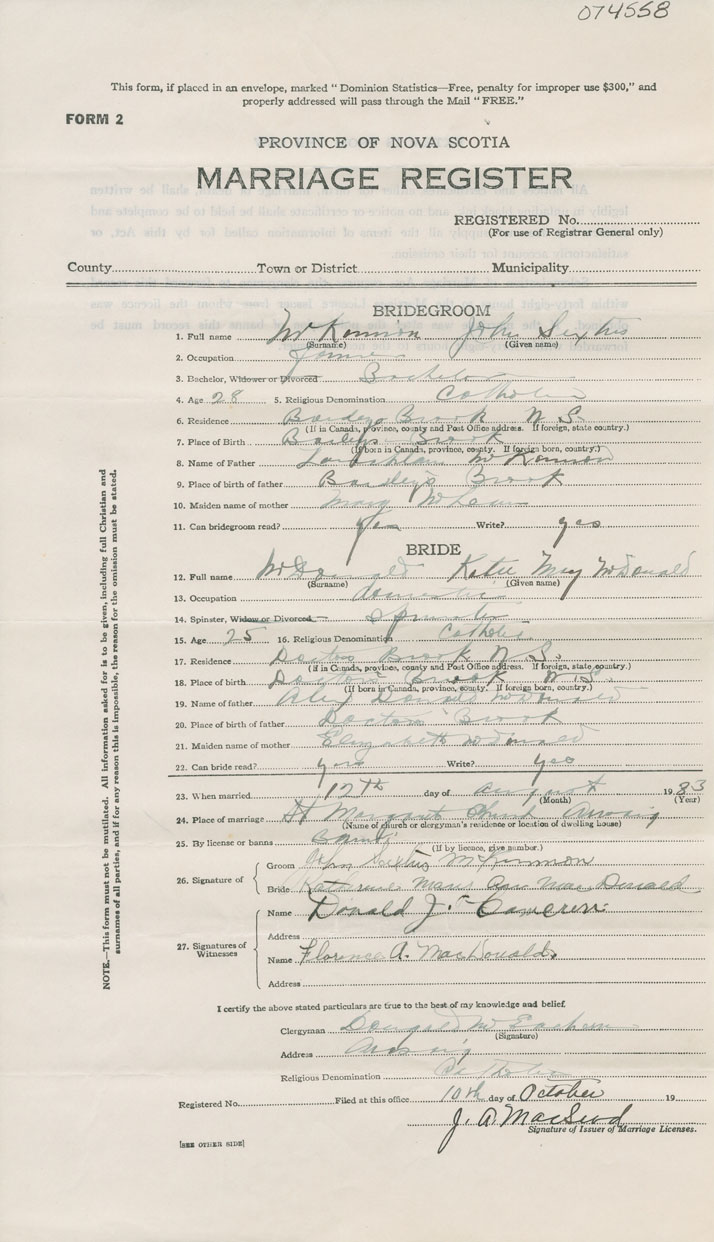 074558
This form, if placed in an envelope, marked "Dominion Statistics—Free, penalty for improper use $300," and
properly addressed will pass through the Mail "FREE."
FORM 2
PROVINCE OF NOVA SCOTIA
MARRIAGE REGISTER
REGISTERED No.
(For use of Registrar General only)
County Town or District Municipality
BRIDEGROOM
1. Full name McKinnon John Sixtus
(Surname) (Given name)
2. Occupation Farmer
3. Bachelor, Widower or Divorced Bachelor
4. Age 28 5. Religious Denomination Catholic
6. Residence Baileys Brook N S
(If in Canada, province, county and Post Office address. If foreign, state country.)
7. Place of Birth Baileys Brook
(If born in Canada, province, county. If foreign born, country.)
8. Name of Father Lauchlan McKinnon
9. Place of birth of father Bailey's Brook
10. Maiden name of mother Mary McLean
11. Can bridegroom read? Yes Write? yes
BRIDE
12. Full name McDonald Katie May McDonald
(Surname) (Given name)
13. Occupation domestic
14. Spinster, Widow or Divorced Spinster
15. Age 25 16. Religious Denomination Catholic
17. Residence Doctors Brook N.S.
(If in Canada, province, county and Post Office address. If foreign, state country.)
18. Place of birth Doctors Brook N.S.
(If born in Canada, province, county. If foreign born, country.)
19. Name of father Donald McDonald
20. Place of birth of father Doctors Brook
21. Maiden name of mother Elizabeth McDonald
22. Can bride read? yes Write? yes
23. When married 12th day of august 1933
(Month) (Year)
24. Place of marriage St Margaret Church Arisaig
(Name of church or clergyman's residence or location of dwelling house)
25. By license or banns Banns
(If by licence, give number.)
26. Signature of Groom John Sixtus McKinnon
Bride Katherine Mary Ann MacDonald
27. Signatures of Witnesses
Name Donald J. Cameron
Address
Name Florence A. MacDonald
Address
I certify the above stated particulars are true to the best of my knowledge and belief.
Clergyman Dougald McEachern
(Signature)
Address Arisaig
Religious Denomination Catholic
Registered No. Filed at this office 10th day of October 19
J. A. MacLeod
Signature of Issuer of Marriage Licenses.
[SEE OTHER SIDE]
NOTE.—This form must not be mutilated. All information asked for is to be given, including full Christian and
surnames of all parties, and if for any reason this is impossible, the reason for the omission must be stated.